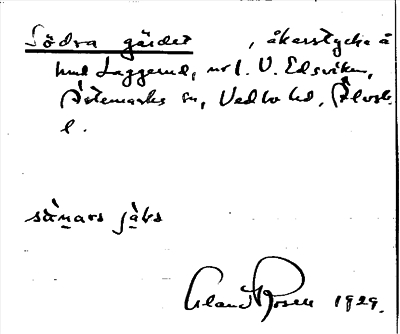 Södra gärdet, åkerstycke å
hmd Laggerud, nr 1. V. Edsviken,
Åstemarks sn, Vedbo hd, Älvsb.
l.
Erland Rosell 1929.